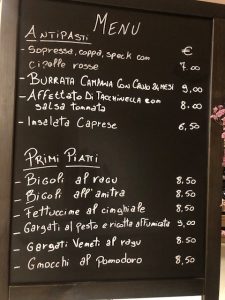 MENU
ANTIPASTI
€
- Sopressa, coppa, speck con
cipolle rosse 7.00
- BURRATA CAMPANA CON CRUDO & MESI 9,00
- Affettato Di Tacchinella con
salsa tonnata 8.00
- Insalata Caprese 6,50
PRIMI PIATTI
- Bigoli al ragu 8.50
- Bigoli all'anitra 8.50
- Fettuccine al cinghiale 8.50
- Gargati al pesto e ricotta affumicata 9,00
- Gargati Veneti al ragu 8.50
- Gnocchi al Pomodoro 8,50